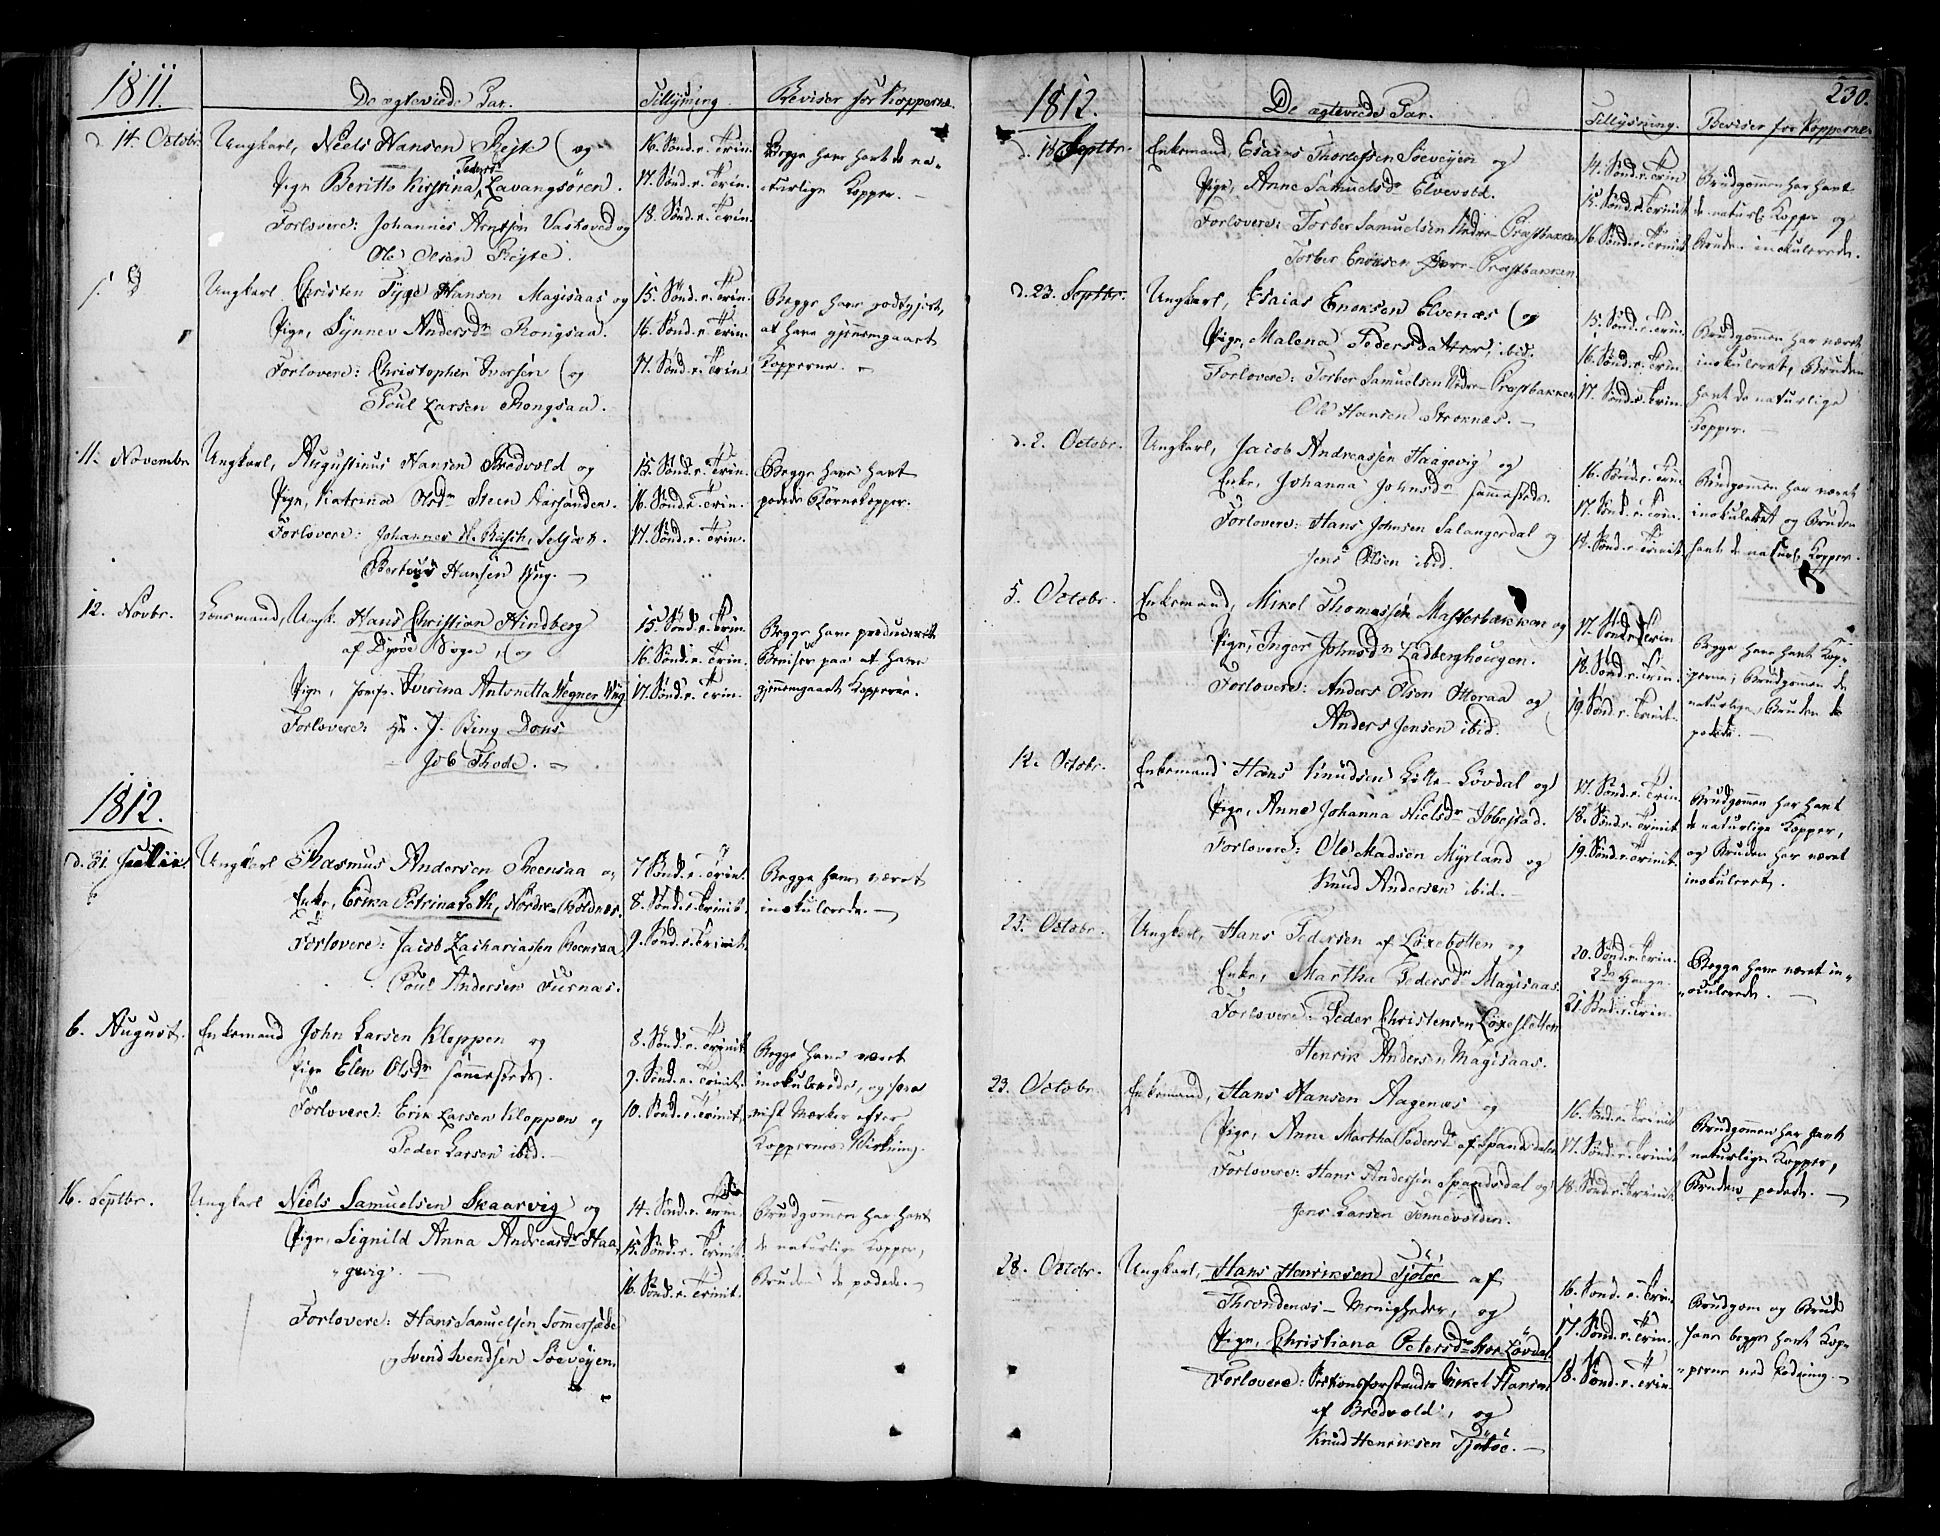 1811.
De ægteviede Par.
Tillysning.
Beviser for Kopperne.
d. 14. Octobr.
Ungkarl, Neels Hansen Røjte og
Pige Beritte Kirstina Pedersd. Lavangsören.
Forlovere: Johannes Arntsön Vashoved og
Ole Olsen Røjte.
16. Sönd. e. Trin.
17. Sönd. e. Trin.
18. Sönd. e. Trin.
Begge have havt de na-
turlige Kopper. -
Ungkarl Christen Tyge Hansen Magisaas og
Pige, Synnev Andersdr Rongsaa.
Forlovere: Christophen Iversen og
Poul Larsen Rongsaa.
15. Sönd. e. Trin.
16. Sönd. e. Trin.
17. Sönd. e. Trin.
Begge have godtgjort,
at have gjennemgaaet
Kopperne. -
11. Novembr.
Ungkarl, Augustinus Hansen Bredvold og
Pige, Katrina Olsdr Steen
Forlovere: Johannes H. Rasch,
Berteus Hansen Ejng. -
15. Sönd. e. Trin.
16. Sönd. e. Trin.
17. Sönd. e. Trin.
Begge have havt
podede Börnekopper.
12. Novbr.
Lensmand, Ungk. Hans Christian Hindberg
af Dyröe Sogn, og
Pige, Jomfr. Iverina Antonetta Wegner Ejng
Forlovere: Hr. J. Bing Dons
Job Thode. -
15. Sönd. e. Trin.
16. Sönd. e. Trin.
17. Sönd. e. Trin.
Begge have produceret
Beviser paa at have
gjennemgaaet Kopperne.
1812.
d. 31. Julii.
Ungkarl Rasmus Andersen Reensaa og
Enke, Erika Petrina Loth, Nordre-Roldnes.
Forlovere: Jacob Zachariassen Reensaa
Poul Andersen Furnas.
7. Sönd. e. Trin.
8. Sönd. e. Trinit.
9. Sönd. e. Trinit.
Begge have været
inokulerede. -
6. August.
Enkemand John Larsen Kloppen og
Pige Elen Olsdr sammesteds.
Forlovere: Erik Larsen Kloppen og
Peder Larsen ibid. -
8. Sönd. e. Trinit.
9. Sönd. e. Trinit.
10. Sönd. e. Trinit.
Begge have været
inokulerede, og have
vist Mærker efter
Koppernes Virkning.
16. Septbr.
Ungkarl Neels Samuelsen Skaarvig og
Pige, Signild Anna Andreasdr Haa-
gevig. -
Forlovere: Hans Samuelsen Sommersæde
og Svend Svendsen Söeveyen.
14. Sönd. e. Trin.
15. Sönd. e. Trinit.
16. Sönd. e. Trinit.
Brudgommen har havt
de naturlige Kopper,
Bruden de podede. -
230.
1812.
De ægteviede Par.
Tillysning.
Beviser for Kopperne.
d. 18 Septbr.
Enkemand, Esaias Thorlefssen Söeveyen og
Pige, Anne Samuelsdr Elvevold.
Forlovere: Torber Samuelsen Nedre-Præstbakken
Torber Enoksen Övre-Præstbakken
14. Sönd. e. Trin.
15. Sönd. e. Trinit.
16. Sönd. e. Trinit.
Brudgommen har havt
de naturl. Kopper og
Bruden inokulerede.
d. 23. Septbr.
Ungkarl, Esaias Enoksen Elvenæs og
Pige, Malena Pedersdatter, ibid.
Forlovere: Torber Samuelsen Nedre-Præstbakken
Ole Hansen Stroknæs. -
15. Sönd. e. Trin.
16. Sönd. e. Trin.
17. Sönd. e. Trin.
Brudgommen har været
inokuleret, Bruden
havt de naturlige
Kopper. -
d. 2. Octobr.
Ungkarl, Jacob Andreassen Haagevig og
Enke, Johanna Johnsdr sammesteds.
Forlovere: Hans Johnsen Salangerdal og
Jens Olsen ibid.
16. Sönd. e. Trin.
17. Sönd. e. Trin.
18. Sönd. e. Trinit.
Brudgommen har været
inokuleret og Bruden
havt de naturl. Kopper.
5. Octobr.
Enkemand, Mikel Thomassen Mosterbakken og
Pige, Inger Johnsdr Ladberghougen.
Forlovere: Anders Olsen Otteraa og
Anders Jensen ibid.
17. Sönd. e. Trin.
18. Sönd. e. Trin.
19. Sönd. e. Trinit.
Begge have havt Kop-
perne, Brudgommen de
naturlige, Bruden de
podede. -
12. Octobr.
Enkemand Hans Knudsen Lille-Lövdal og
Pige, Anne Johanna Nielsdr Ibbestad.
Forlovere: Ole Madsen Myrland og
Knud Andersen ibid. -
17. Sönd. e. Trin.
18. Sönd. e. Trinit.
19. Sönd. e. Trinit.
Brudgommen har havt
de naturlige Kopper,
og Bruden har været
inokuleret.
23. Octobr.
Ungkarl, Hans Pedersen af Löxebotten og
Enke, Martha Pedersdr Magisaas.
Forlovere: Peder Christensen Löxebotten
Henrik Andersen Magisaas.
20. Sönd. e. Trin.
2de Gange.
21. Sönd. e. Trin.
Begge have været in-
okulerede. -
23. Octobr.
Enkemand, Hans Hansen Aagenæs og
Pige, Anne Martha Pedersdr af Spandsdalen
Forlovere: Hans Andersen Spandsdal og
Jens Larsen Tennevolden.
16. Sönd. e. Trinit.
17. Sönd. e. Trinit.
18. Sönd. e. Trinit.
Brudgommen har havt
naturlige Kopper,
Bruden podede. -
28. Octobr.
Ungkarl, Hans Henriksen Tjötöe af
Throndenæs-Menigheder, og
Pige, Christiana Petersdr Store-Lövdal
Forlovere: Mikel Hansen
af Bredvold, og
Knud Henriksen Tjötöe. -
16. Sönd. e. Trin.
17. Sönd. e. Trin.
18. Sönd. e. Trin.
Brudgom og Brud
have begge havt Kop-
perne ved Podning. -